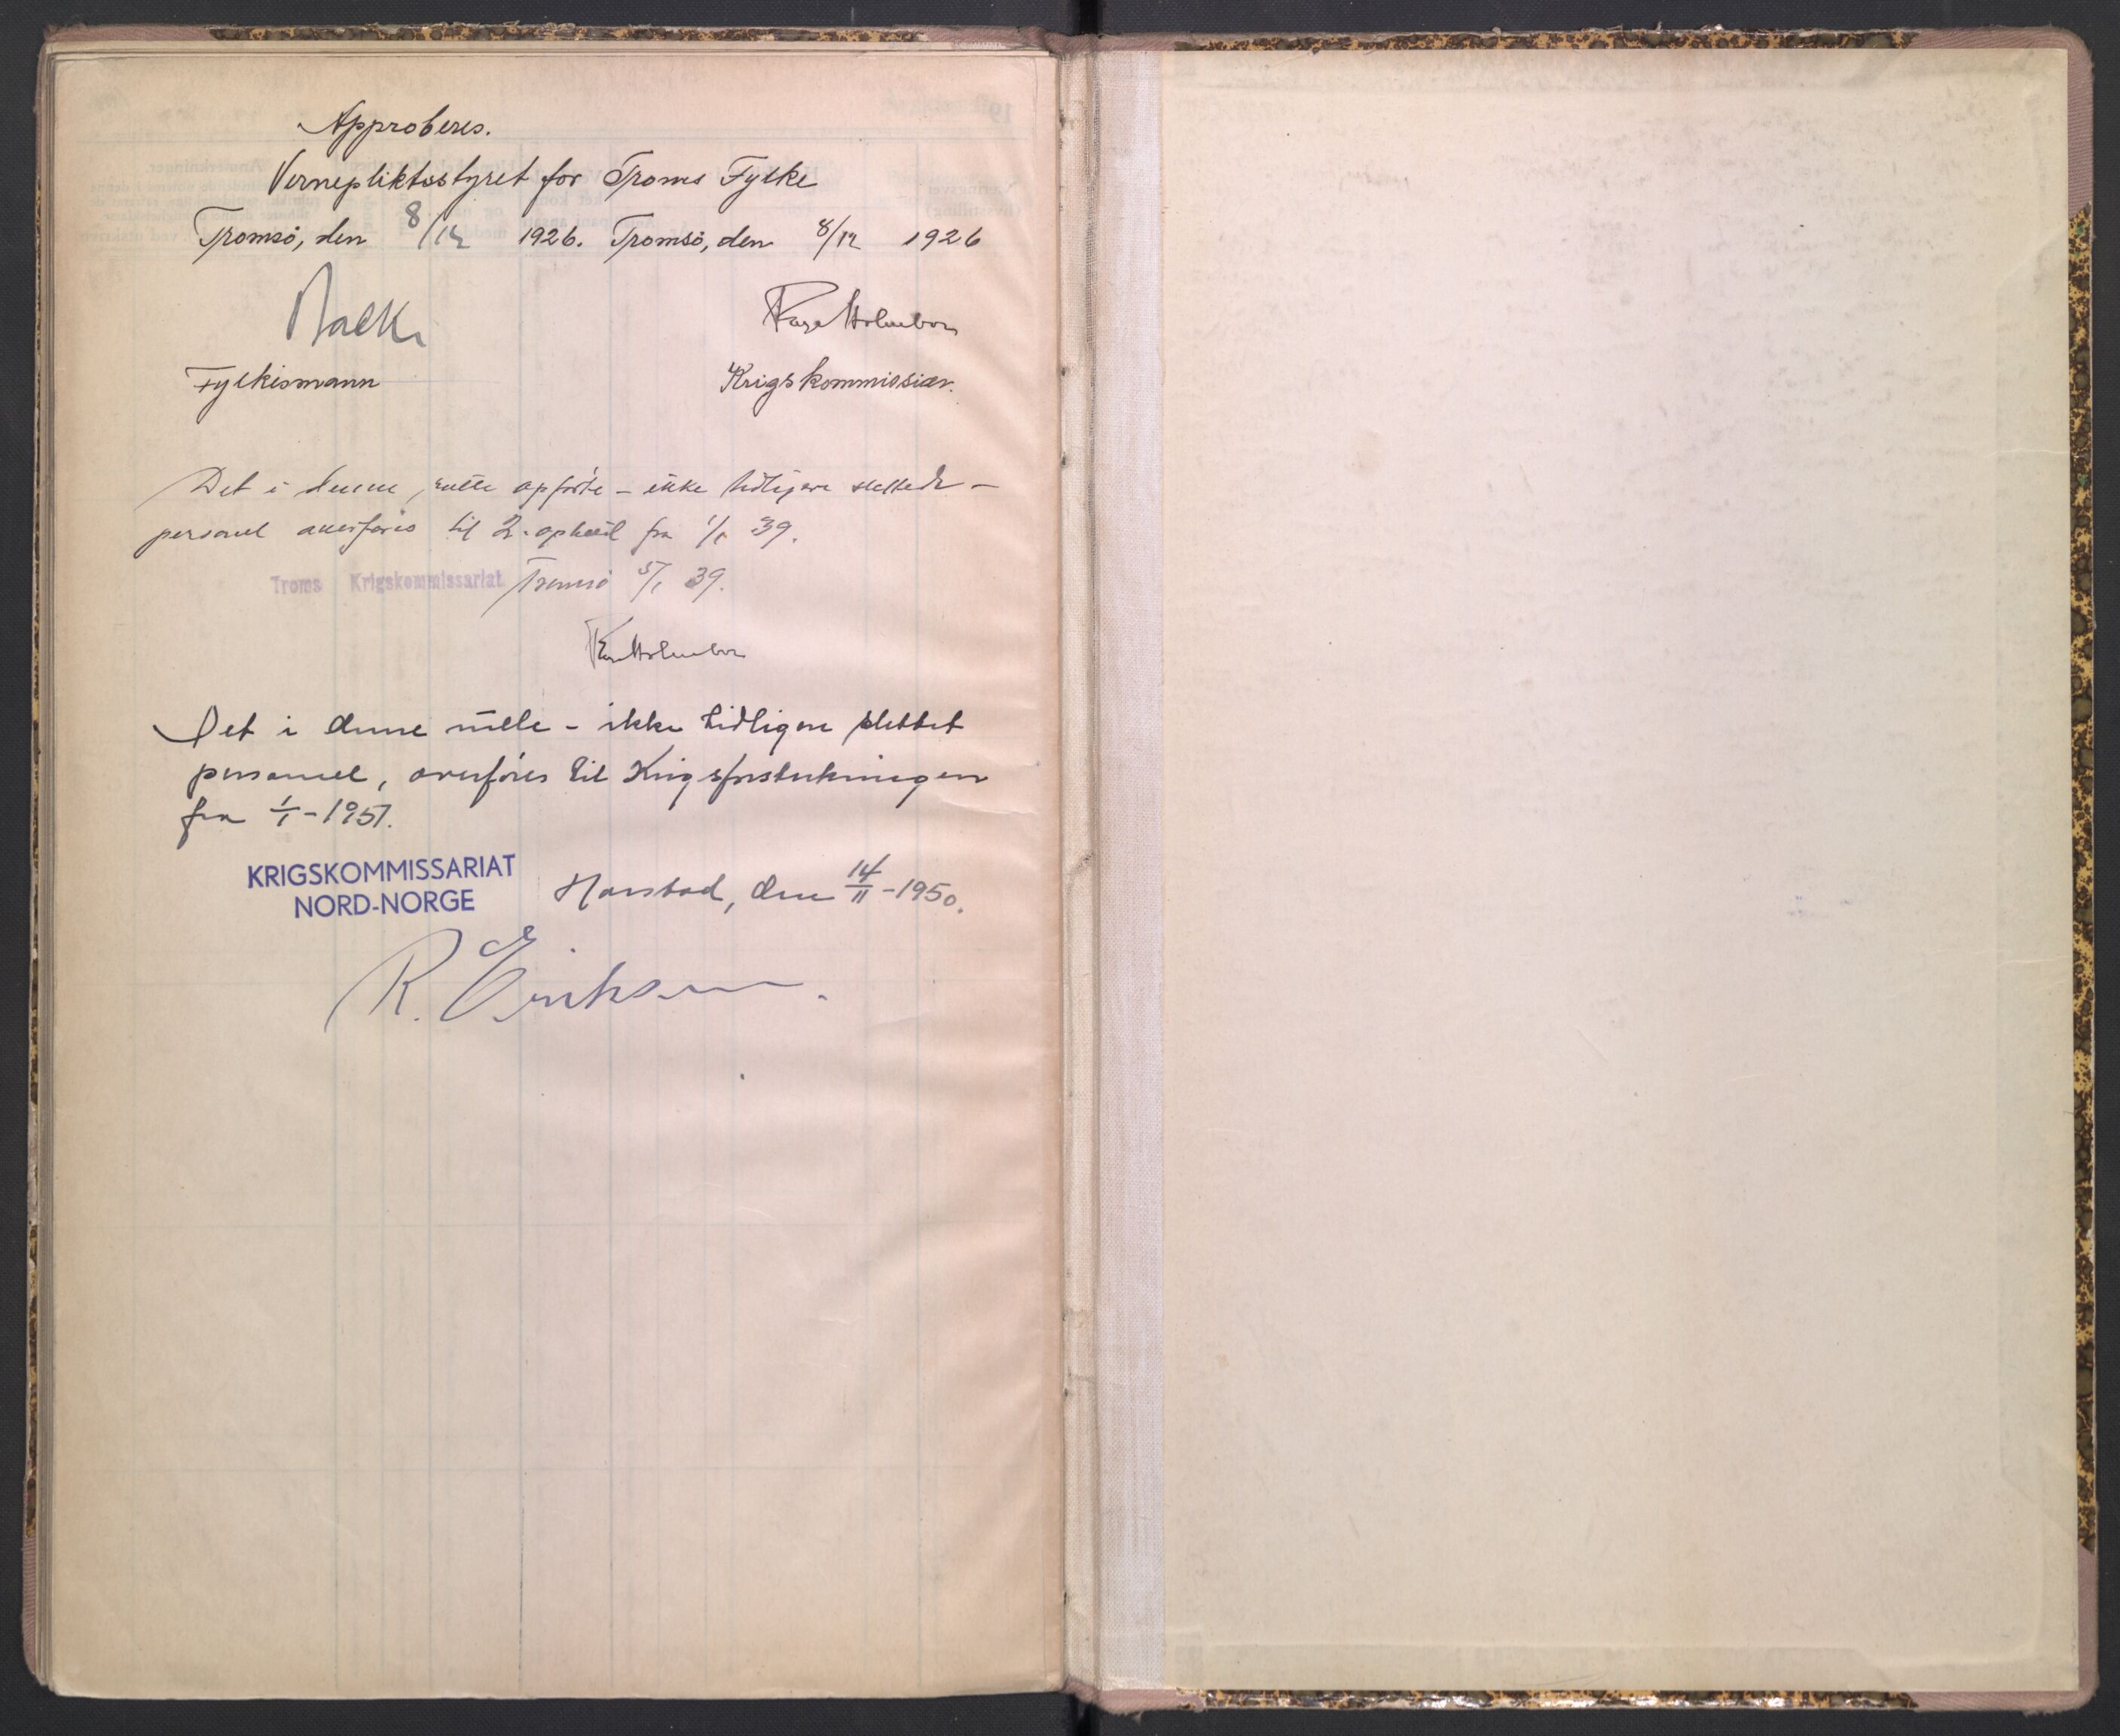 Approberes.
Vernepliktsstyret for Troms Fylke
Tromsö, den 8/12 1926. Tromsö, den 8/12 1926
Fylkesmann Krigskommissær.
Det i denne rulle opförte - ikke tidligere slettede -
personel overföres til 2. opbud fra 1/1 39.
Troms Krigskommissariat Tromsö 5/1 39.
Det i denne rulle - ikke tidligere slettet
personel, overföres til Krigsforsterkningen
fra 1/1 - 1951.
KRIGSKOMMISSARIAT
NORD-NORGE
Harstad, den 14/11 - 1950.
R. Eriksen.